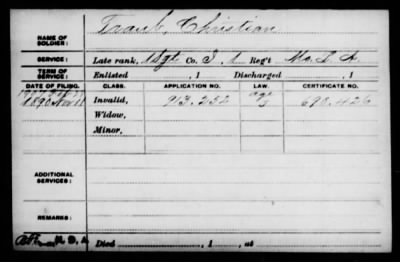 NAME OF SOLDIER: Traub, Christian
SERVICE: Late rank, 1 Sgt Co. I, 1 Reg't Mo. L A.
TERM OF SERVICE: Enlisted , 1 Discharged , 1
DATE OF FILING. CLASS. APPLICATION NO. LAW. CERTIFICATE NO.
1890 Nov 11 Invalid, 913.252 690.426
Widow,
Minor,
ADDITIONAL SERVICES:
REMARKS:
Died , 1 , at